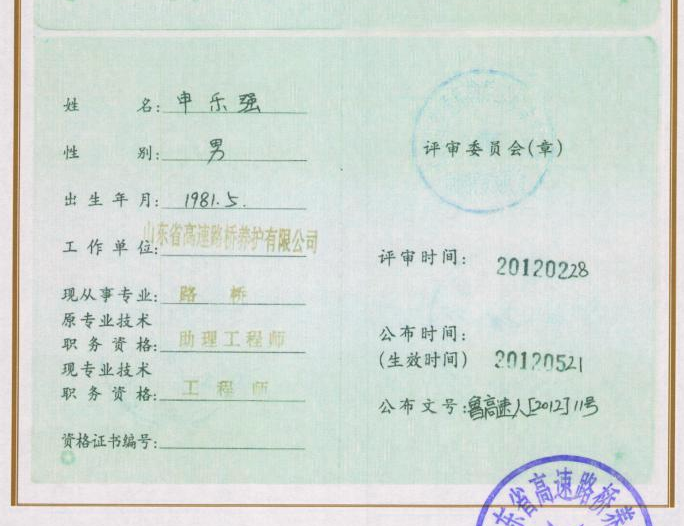 姓 名: 申乐强
性 别: 男
出生年月: 1981.5.
工作单位: 山东省高速路桥养护有限公司
现从事专业: 路 桥
原专业技术
职务资格: 助理工程师
现专业技术
职务资格: 工 程 师
资格证书编号:
评审委员会(章)
评审时间: 20120228
公布时间:
(生效时间) 20120521
公布文号: 鲁高速人[2012]11号
东省高速路桥养